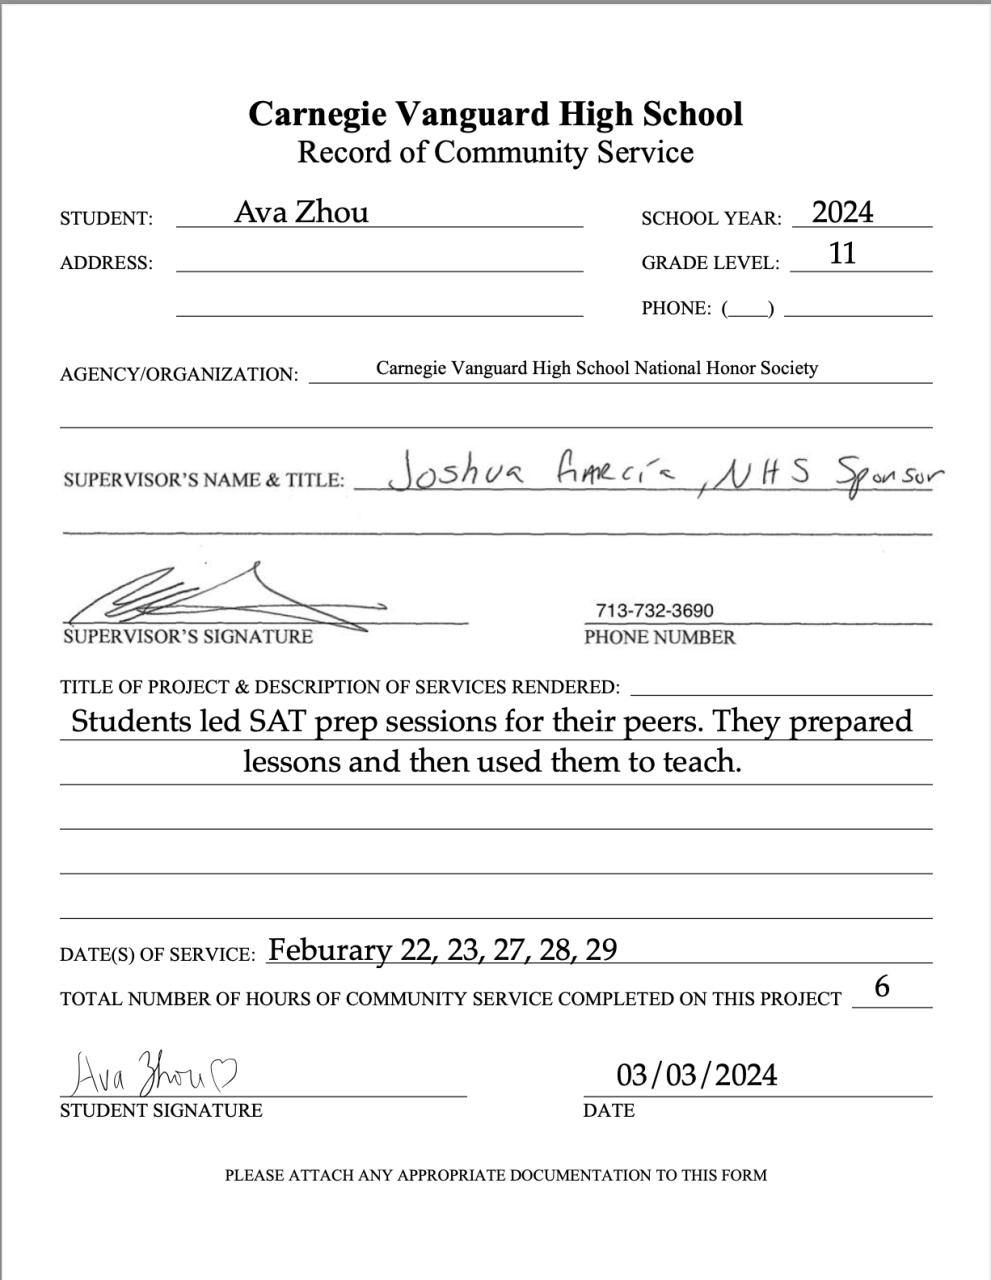 Carnegie Vanguard High School
Record of Community Service
STUDENT: Ava Zhou SCHOOL YEAR: 2024
ADDRESS: GRADE LEVEL: 11
PHONE: (___)
AGENCY/ORGANIZATION: Carnegie Vanguard High School National Honor Society
SUPERVISOR'S NAME & TITLE: Joshua García, NHS Sponsor
713-732-3690
SUPERVISOR'S SIGNATURE PHONE NUMBER
TITLE OF PROJECT & DESCRIPTION OF SERVICES RENDERED:
Students led SAT prep sessions for their peers. They prepared
lessons and then used them to teach.
DATE(S) OF SERVICE: Feburary 22, 23, 27, 28, 29
TOTAL NUMBER OF HOURS OF COMMUNITY SERVICE COMPLETED ON THIS PROJECT 6
Ava Zhou♡ 03/03/2024
STUDENT SIGNATURE DATE
PLEASE ATTACH ANY APPROPRIATE DOCUMENTATION TO THIS FORM